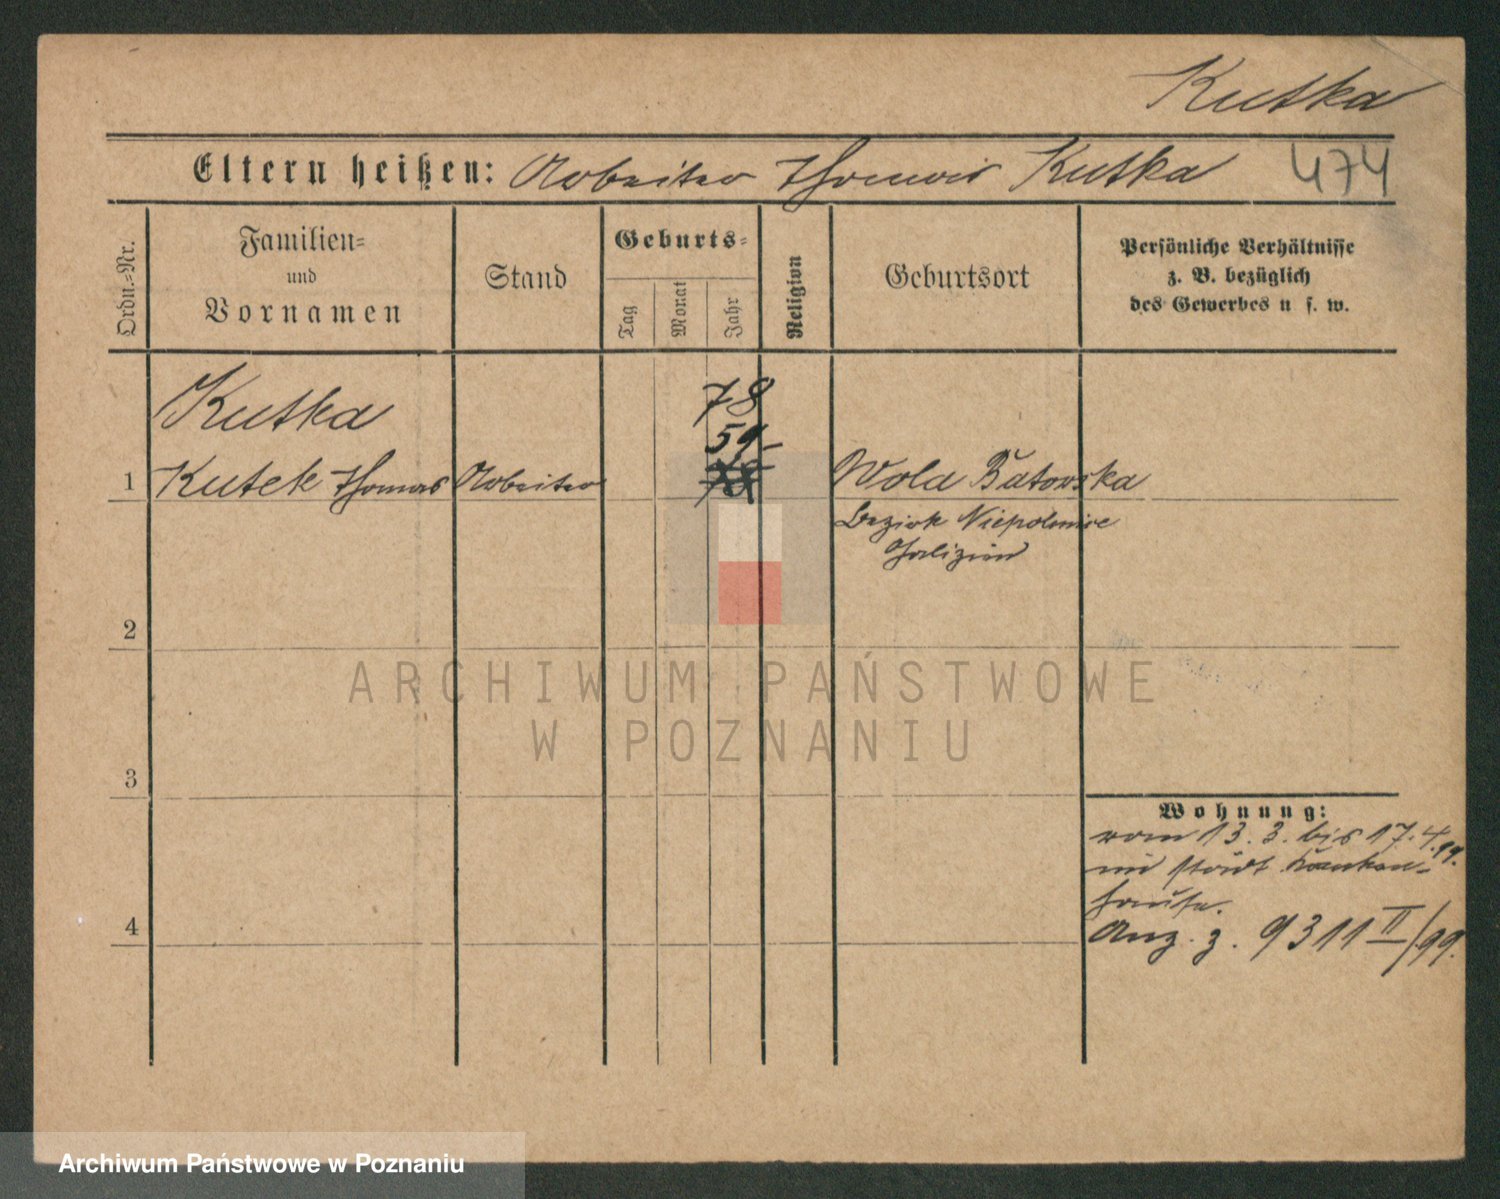 Kutka
Eltern heißen: Arbeiter Thomas Kutka 474
Ordn.-Nr.
Familien-
und
Vornamen
Stand
Geburts-
Tag
Monat
Jahr
Religion
Geburtsort
Persönliche Verhältnisse
z. B. bezüglich
des Gewerbes u s. w.
Kutka
78
59
1 Kutek Thomas Arbeiter Wola Batorska
Bezirk Niepolomice
Galizien
2
ARCHIWUM PAŃSTWOWE
W POZNANIU
3
Wohnung:
vom 13. 3. bis 17. 4. 99.
im städt Kranken-
hause.
4
Anz. z. 9311 II/99.
Archiwum Państwowe w Poznaniu